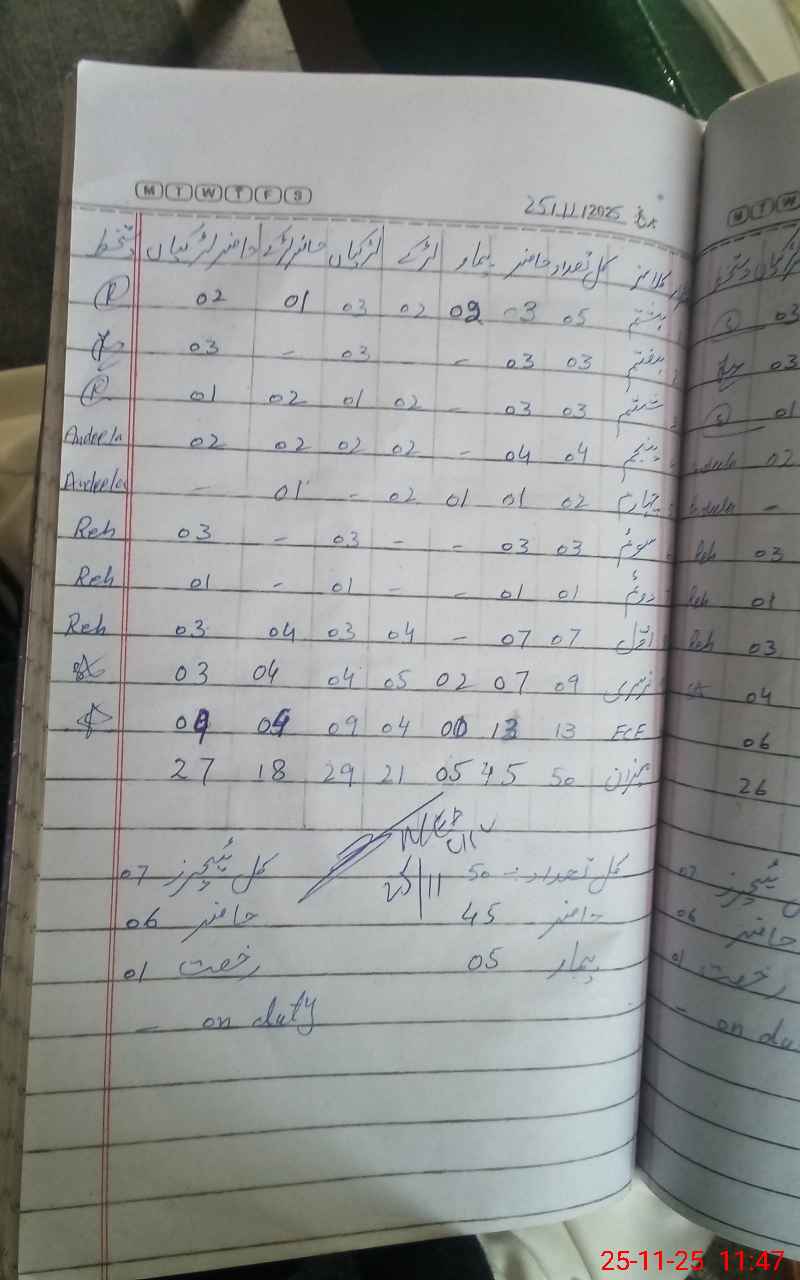 M T W T F S
25/11/2025
کلاسز کل تعداد حاضر بیمار لڑکے لڑکیاں حاضر لڑکے حاضر لڑکیاں دستخط
ہشتم 05 03 02 02 03 01 02
ہفتم 03 03 - - 03 - 03
ششتم 03 03 - 02 01 02 01
پنجم 04 04 - 02 02 02 02 Andeela
چہارم 02 01 01 02 - 01 - Andeela
سوئم 03 03 - - 03 - 03 Reh
دوئم 01 01 - - 01 - 01 Reh
اوّل 07 07 - 04 03 04 03 Reh
نرسری 09 07 02 05 04 04 03
ECE 13 13 00 04 09 04 09
میزان 50 45 05 21 29 18 27
کل تعداد :- 50 کل ٹیچرز 07
حاضر 45 حاضر 06
بیمار 05 رخصت 01
on duty -
25/11
03
03
01
02
-
Reh 03
Reh 01
Reh 03
04
06
26
ٹیچرز 07
حاضر 06
رخصت 01
on du -
25-11-25 11:47